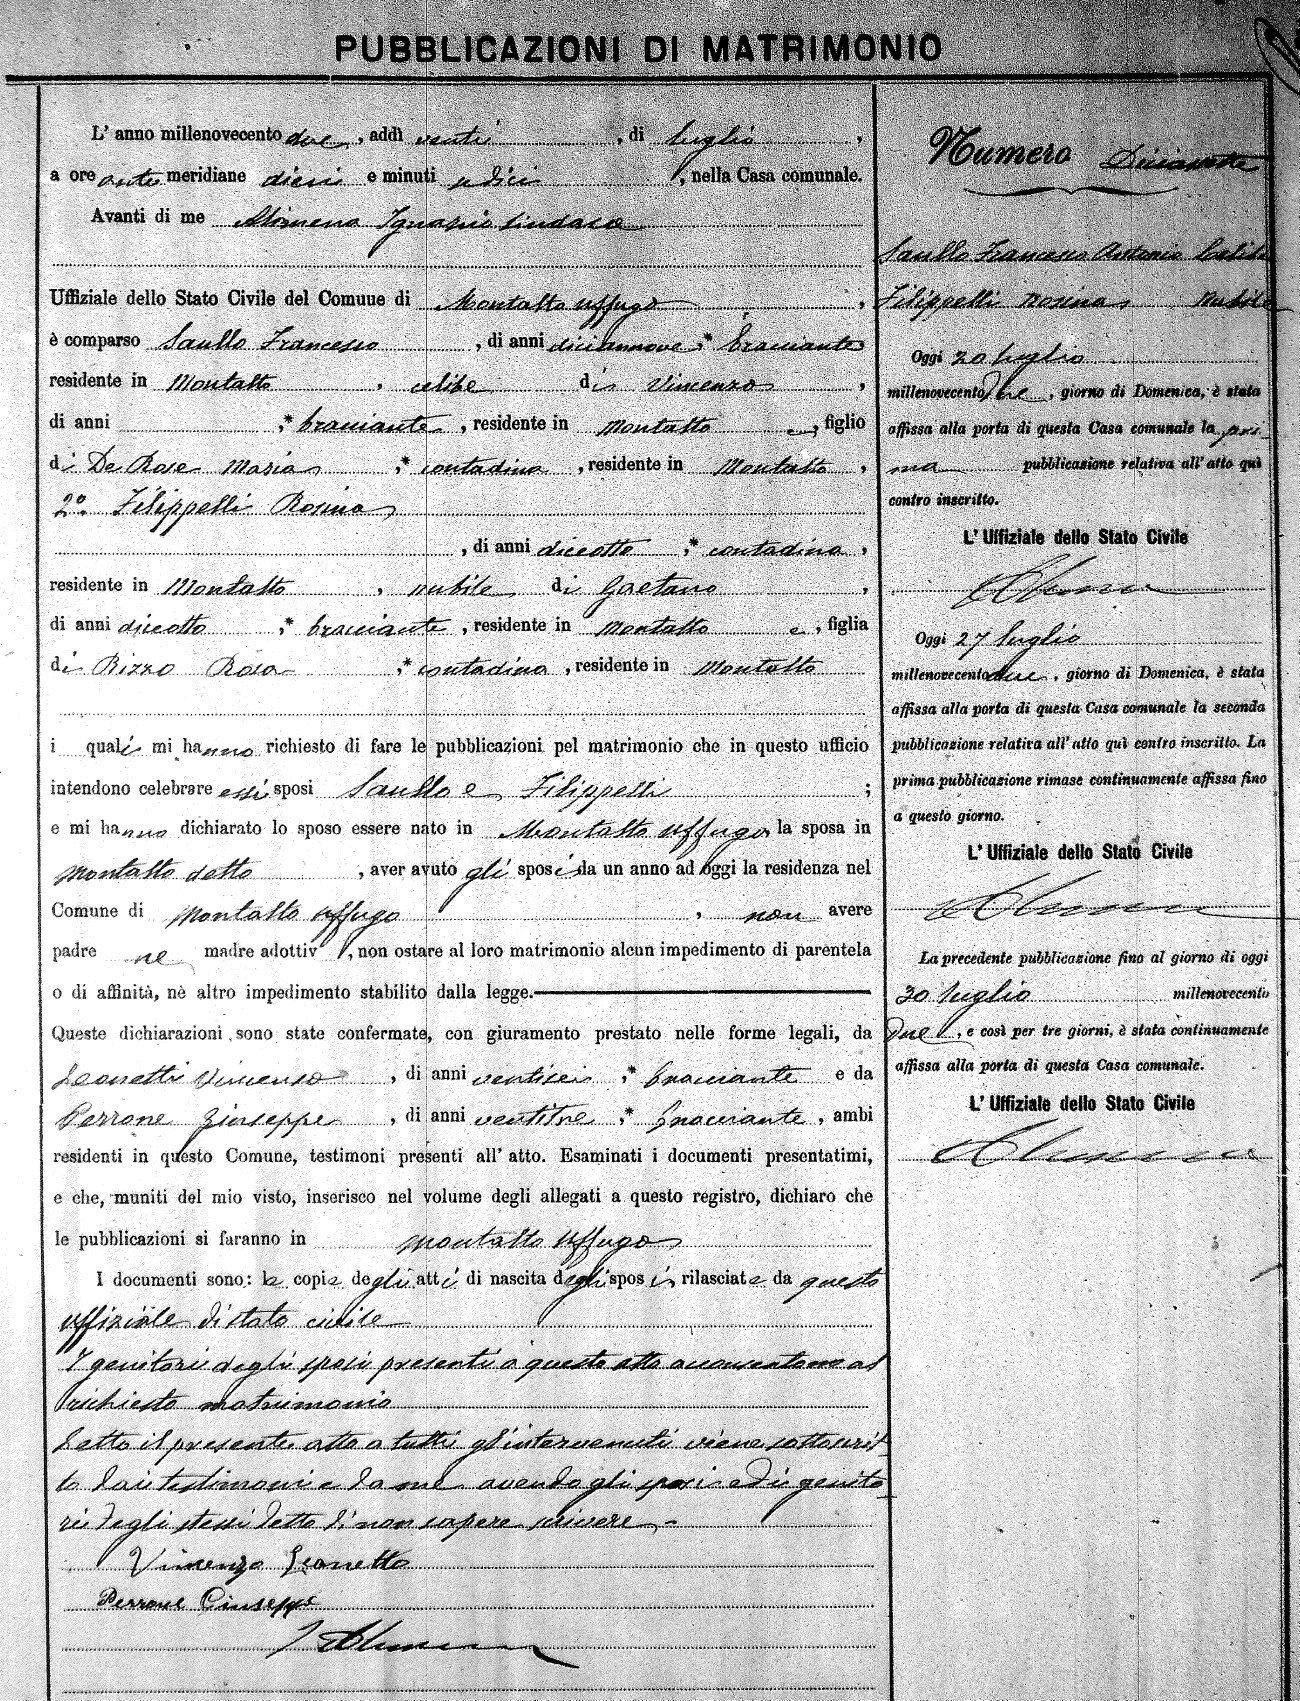 PUBBLICAZIONI DI MATRIMONIO
L' anno millenovecento due, addì venti, di luglio,
a ore ante meridiane dieci e minuti undici, nella Casa comunale.
Avanti di me Alimena Ignazio sindaco
Uffiziale dello Stato Civile del Comune di Montalto Uffugo,
è comparso Saullo Francesco, di anni diciannove,* bracciante
residente in Montalto, celibe di Vincenzo,
di anni ,* bracciante, residente in Montalto e, figlio
di De Rose Maria,* contadina, residente in Montalto,
2º Filippelli Rosina
, di anni diceotto,* contadina,
residente in Montalto, nubile di Gaetano,
di anni diceotto,* bracciante, residente in Montalto e, figlia
di Rizzo Rosa,* contadina, residente in Montalto
i quali mi hanno richiesto di fare le pubblicazioni pel matrimonio che in questo ufficio
intendono celebrare essi sposi Saullo e Filippelli;
e mi hanno dichiarato lo sposo essere nato in Montalto Uffugo, la sposa in
Montalto detto, aver avuto gli sposi da un anno ad oggi la residenza nel
Comune di Montalto Uffugo, non avere
padre ne madre adottiv, non ostare al loro matrimonio alcun impedimento di parentela
o di affinità, nè altro impedimento stabilito dalla legge.
Queste dichiarazioni sono state confermate, con giuramento prestato nelle forme legali, da
Leonetti Vincenzo, di anni ventisei,* bracciante e da
Perrone Giuseppe, di anni ventitre,* bracciante, ambi
residenti in questo Comune, testimoni presenti all' atto. Esaminati i documenti presentatimi,
e che, muniti del mio visto, inserisco nel volume degli allegati a questo registro, dichiaro che
le pubblicazioni si faranno in Montalto Uffugo
I documenti sono: le copie degli atti di nascita degli sposi rilasciate da questo
uffiziale di stato civile
I genitori degli sposi presenti a questo atto acconsentono al
richiesto matrimonio
Letto il presente atto a tutti gl'intervenuti viene sottoscrit
to dai testimoni e da me avendo gli sposi ed i genito
ri degli stessi detto di non sapere scrivere.-
Vincenzo Leonetto
Perrone Giuseppe
I Alimena
Numero Diciasette
Saullo Francesco Antonio Celibe
Filippelli Rosina Nubile
Oggi 20 luglio
millenovecento due, giorno di Domenica, è stata
affissa alla porta di questa Casa comunale la pri-
ma pubblicazione relativa all' atto quì
contro inscritto.
L' Uffiziale dello Stato Civile
Alimena
Oggi 27 luglio
millenovecento due, giorno di Domenica, è stata
affissa alla porta di questa Casa comunale la seconda
pubblicazione relativa all' atto quì contro inscritto. La
prima pubblicazione rimase continuamente affissa fino
a questo giorno.
L' Uffiziale dello Stato Civile
Alimena
La precedente pubblicazione fino al giorno di oggi
30 luglio millenovecento
due, e così per tre giorni, è stata continuamente
affissa alla porta di questa Casa comunale.
L' Uffiziale dello Stato Civile
Alimena